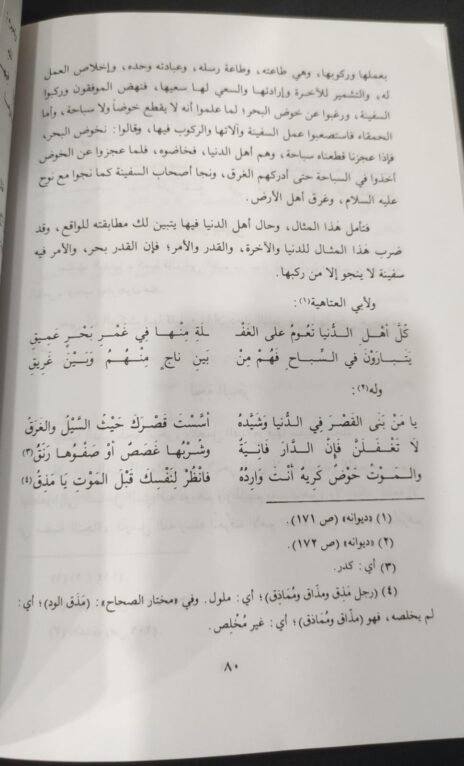 بعملها وركوبها، وهي طاعته، وطاعة رسله، وعبادته وحده، وإخلاص العمل
له، والتشمير للآخرة وإرادتها والسعي لهـا سعيها، فنهض الموفقون وركبوا
السفينة، ورغبوا عن خوض البحر؛ لما علموا أنه لا يقطع خوضاً ولا سباحة، وأما
الحمقاء فاستصعبوا عمل السفينة وآلاتها والركوب فيها، وقالوا: نخوض البحر،
فإذا عجزنا قطعناه سباحة، وهم أهل الدنيا، فخاضوه، فلما عجزوا عن الخوض
أخذوا في السباحة حتى أدركهم الغرق، ونجا أصحاب السفينة كما نجوا مع نوح
عليه السلام، وغرق أهل الأرض.
فتأمل هٰذا المثال، وحال أهل الدنيا فيها يتبين لك مطابقته للواقع، وقد
ضرب هٰذا المثال للدنيا والآخرة، والقدر والأمر؛ فإن القدر بحر، والأمر فيه
سفينة لا ينجو إلا من ركبها.
ولأبي العتاهية(١):
كُلُّ أهْلِ الدُّنيا تَعُومُ على الغَفْـ ـلَةِ مِنْـها فِي غَمْرِ بَحْرٍ عَمِيقِ
يَتَبارَوْنَ في السِّباحِ فَهُمْ مِنْ بَينِ ناجٍ مِنْـهُـمُ وَبَيْنَ غَرِيقِ
وله(٢):
يا مَنْ بَنَى القَصْرَ فِي الدُّنْيا وَشَيَّدَهُ أسَّسْتَ قَصْرَكَ حَيْثُ السَّيْلُ والغَرَقُ
لا تَغْـفُـلَنَّ فَإِنَّ الدَّارَ فَانِيَةٌ وشُرْبُها غَصَصٌ أوْ صَفْوُها رَنَقُ(٣)
والمَوْتُ حَوْضٌ كَرِيهٌ أنْتَ وَارِدُهُ فانْظُرْ لِنَفْسكَ قَبْلَ المَوْتِ يَا مَذِقُ(٤)
(١) «ديوانه» (ص ١٧١).
(٢) «ديوانه» (ص ١٧٢).
(٣) أي: كدر.
(٤) (رجل مَذِق ومذَّاق ومُمَاذِق)؛ أي: ملول. وفي «مختار الصحاح»: (مَذَق الود)؛ أي:
لم يخلصه، فهو (مذَّاق ومُمَاذق)؛ أي: غير مُخْلِص.
٨٠